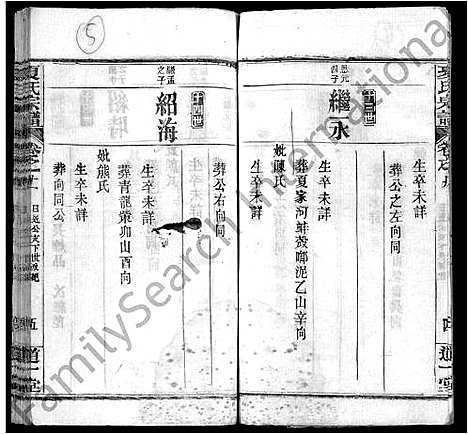 夏氏宗譜
卷之九
四
道一堂
生卒未詳
葬公之左向同
十四世
繼永
忠元
四子
生卒未詳
葬夏家河蚌殼啣泥乙山辛向
妣陳氏
生卒未詳
葬公右向同
十五世
紹海
繼孟
之子
生卒未詳
葬青龍策 山酉向
妣熊氏
生卒未詳
葬向同公
夏氏宗譜
卷之
五
道一堂
5
FamilySearch International